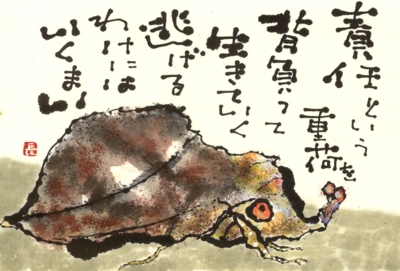 責任という
重荷を
背負って
生きていく
逃げる
わけには
いくまい